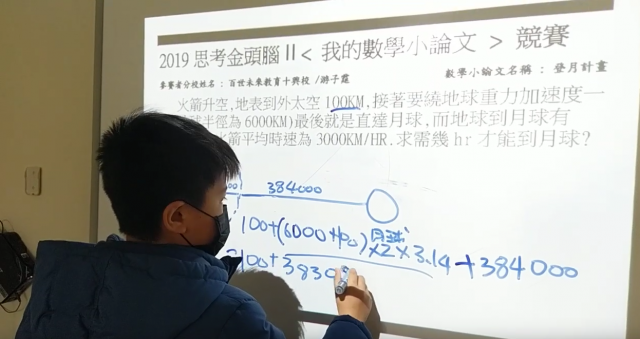 2019 思考金頭腦 II < 我的數學小論文 > 競賽
參賽者分校姓名 : 百世未來教育十興校 /游子霆 數學小論文名稱 : 登月計畫
火箭升空,地表到外太空 100KM,接著要繞地球重力加速度一
球半徑為 6000KM)最後就是直達月球,而地球到月球有
火箭平均時速為 3000KM/HR. 求需幾 hr 才能到月球?
384000
月球
100+(6000+100)×2×3.14+384000
100+383